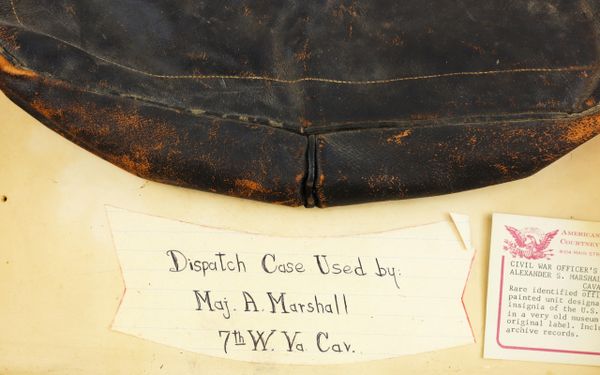 Dispatch Case Used by:
Maj. A. Marshall
7th W. Va. Cav.
AMERICAN
COURTNEY
CIVIL WAR OFFICER'S
ALEXANDER S. MARSHAL
CAVA
Rare identified offi
painted unit designa
insignia of the U.S.
in a very old museum
original label. Inclu
archive records.